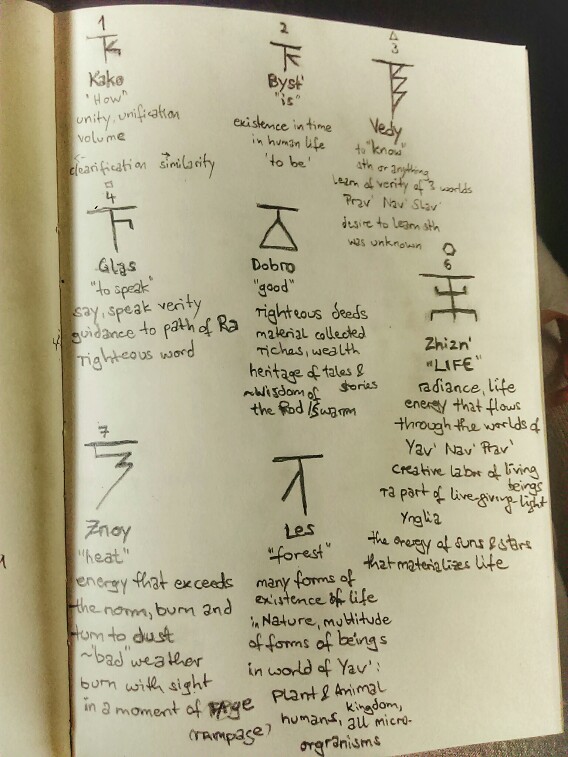 1
Kako
"How"
unity, unification
volume
clearification similarity
2
Byst'
"is"
existence in time
in human life
'to be'
3
Vedy
to "know"
sth or anything
learn of verity of 3 worlds
Prav' Nav' Slav'
desire to learn sth
was unknown
4
Glas
"to speak"
say, speak verity
guidance to path of Ra
righteous word
Dobro
"good"
righteous deeds
material collected
riches, wealth
heritage of tales &
stories
~wisdom of
the Rod /swarm
6
Zhizn'
"LIFE"
radiance, life
energy that flows
through the worlds of
Yav' Nav' Prav'
creative labor of living
beings
a part of live-giving light
Ynglia
the energy of suns & stars
that materializes life
7
Znoy
"heat"
energy that exceeds
the norm, burn and
turn to dust
~"bad" weather
burn with sight
in a moment of rage
(rampage)
Les
"forest"
many forms of
existence of life
in Nature, multitude
of forms of beings
in world of Yav':
Plant & Animal
kingdom,
humans, all micro-
orgranisms